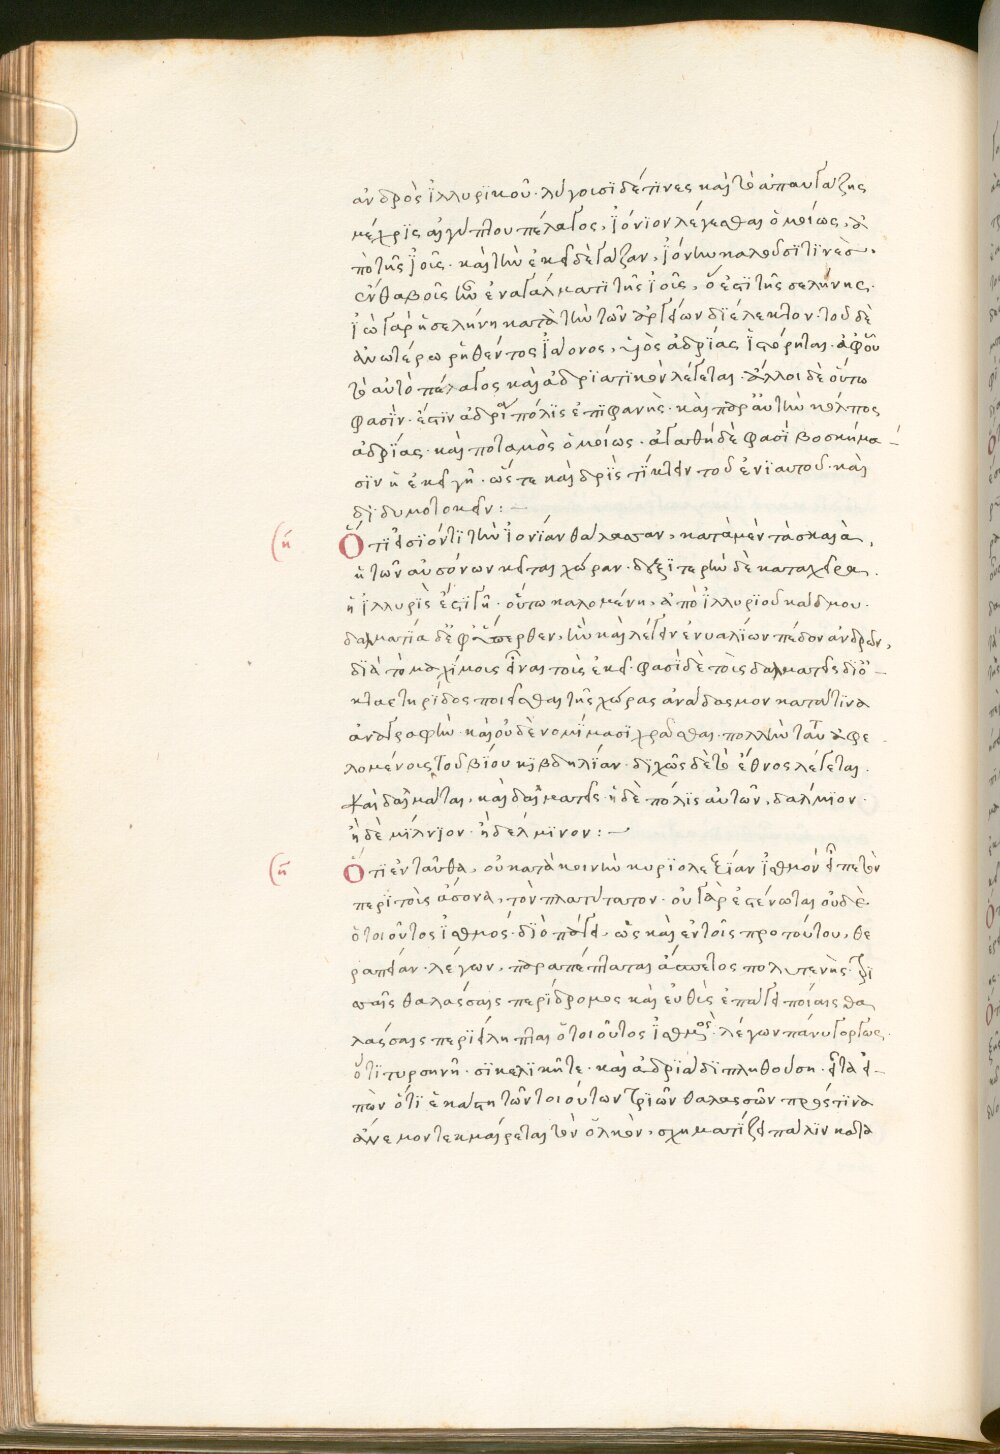 ἀνδρὸς ἰλλυρϊκοῦ· λέγουσι δέ τινες καὶ τὸ ἀπὸ γάζης
μέχρϊς αἰγύπτου πέλαγος, ἰόνϊον λέγεσθαι ὁμοίως, ἀ
πὸ τῆς ἰοῦς· καὶ τὴν ἐκεῖ δὲ γάζαν, ἰόνην καλοῦσί τινες,
ἔνθα βοῦς ἦν ἐν ἀγάλματι τῆς ἰοῦς, ὅ ἐστι τῆς σελήνης·
ἰὼ γὰρ ἡ σελήνη κατὰ τὴν τῶν ἀργείων διάλεκτον· τοῦ δὲ
ἀνωτέρω ῥηθέντος ἰάονος, υἱὸς ἀδρίας ἱστόρηται· ἀφοῦ
τὸ αὐτὸ πέλαγος καὶ ἀδριατικὸν λέγεται· ἄλλοι δὲ οὕτω
φασὶν· ἔστιν ἀδρία πόλις ἐπιφανὴς· καὶ παρ' αὐτὴν κόλπος
ἀδρίας· καὶ ποταμὸς ὁμοίως· ἀγαθὴ δὲ φασὶ βοσκήμα-
σιν ἡ ἐκεῖ γῆ· ὥστε καὶ δρὶς τίκτειν τοῦ ἐνιαυτοῦ· καὶ
διδυμοτοκεῖν:-
(ση) Ὅτι εἰσϊόντι τὴν ἰονίαν θάλασσαν, κατὰ μὲν τὰ σκαιὰ,
ἡ τῶν αὐσόνων κεῖται χώρα· δεξιτερὴν δὲ κατὰ χεῖρα,
ἡ ἰλλυρὶς ἐστὶ γῆ· οὕτω καλουμένη, ἀπὸ ἰλλυρϊοῦ κάδμου·
δαλματία δ' ἐφύπερθεν, ἣν καὶ λέγει ἐνυαλίων πέδον ἀνδρῶν,
διὰ τὸ μαχίμους εἶναι τοὺς ἐκεῖ· φασὶ δὲ τοὺς δαλματεῖς δι' ὀ-
κταετηρίδος ποιεῖσθαι τῆς χώρας ἀναδασμὸν κατά τινα
ἀναγραφὴν· καὶ οὐδὲ νομίμασι χρᾶσθαι· πολλὴν ταύτῃ ἀφε-
λομένοις τοῦ βίου κιβδηλίαν· διχῶς δὲ τὸ ἔθνος λέγεται·
καὶ δαλμάται, καὶ δαλματεῖς· ἡ δὲ πόλϊς αὐτῶν, δαλμϊον·
ἢ δελμίνϊον· ἢ δέλμινον:-
(ση) Ὅτι ἐνταῦθα, οὐ κατὰ κοινὴν κυριολεξίαν ἰσθμὸν εἶπε τὸν
περὶ τοὺς αὔσονα, τὸν πλατύτατον· οὐ γὰρ ἐστένωται οὐδὲ
ὁ τοιοῦτος ἰσθμός· διὸ ποιεῖ, ὡς καὶ ἐν τοῖς πρὸ τούτου, θε
ραπείαν· λέγων, παραπέπταται ἄσπετος πολυτενὴς· τρι
σσαῖς θαλάσσαις περίδρομος καὶ εὐθὺς ἐπάγει ποίαις θα
λάσσαις περιείληπται ὁ τοιοῦτος ἰσθμός· λέγων πανυγοργῶς,
ὅτι τυρσηνῆ· σικελικῆ τε· καὶ ἀδριάδι πληθούση· εἶτα εἰ-
πὼν ὅτι ἑκάστη τῶν τοιούτων τριῶν θαλασσῶν πρός τινα
ἄνεμον τεκμαίρεται τὸν ὁλκὸν, σχηματίζει πάλιν κατὰ